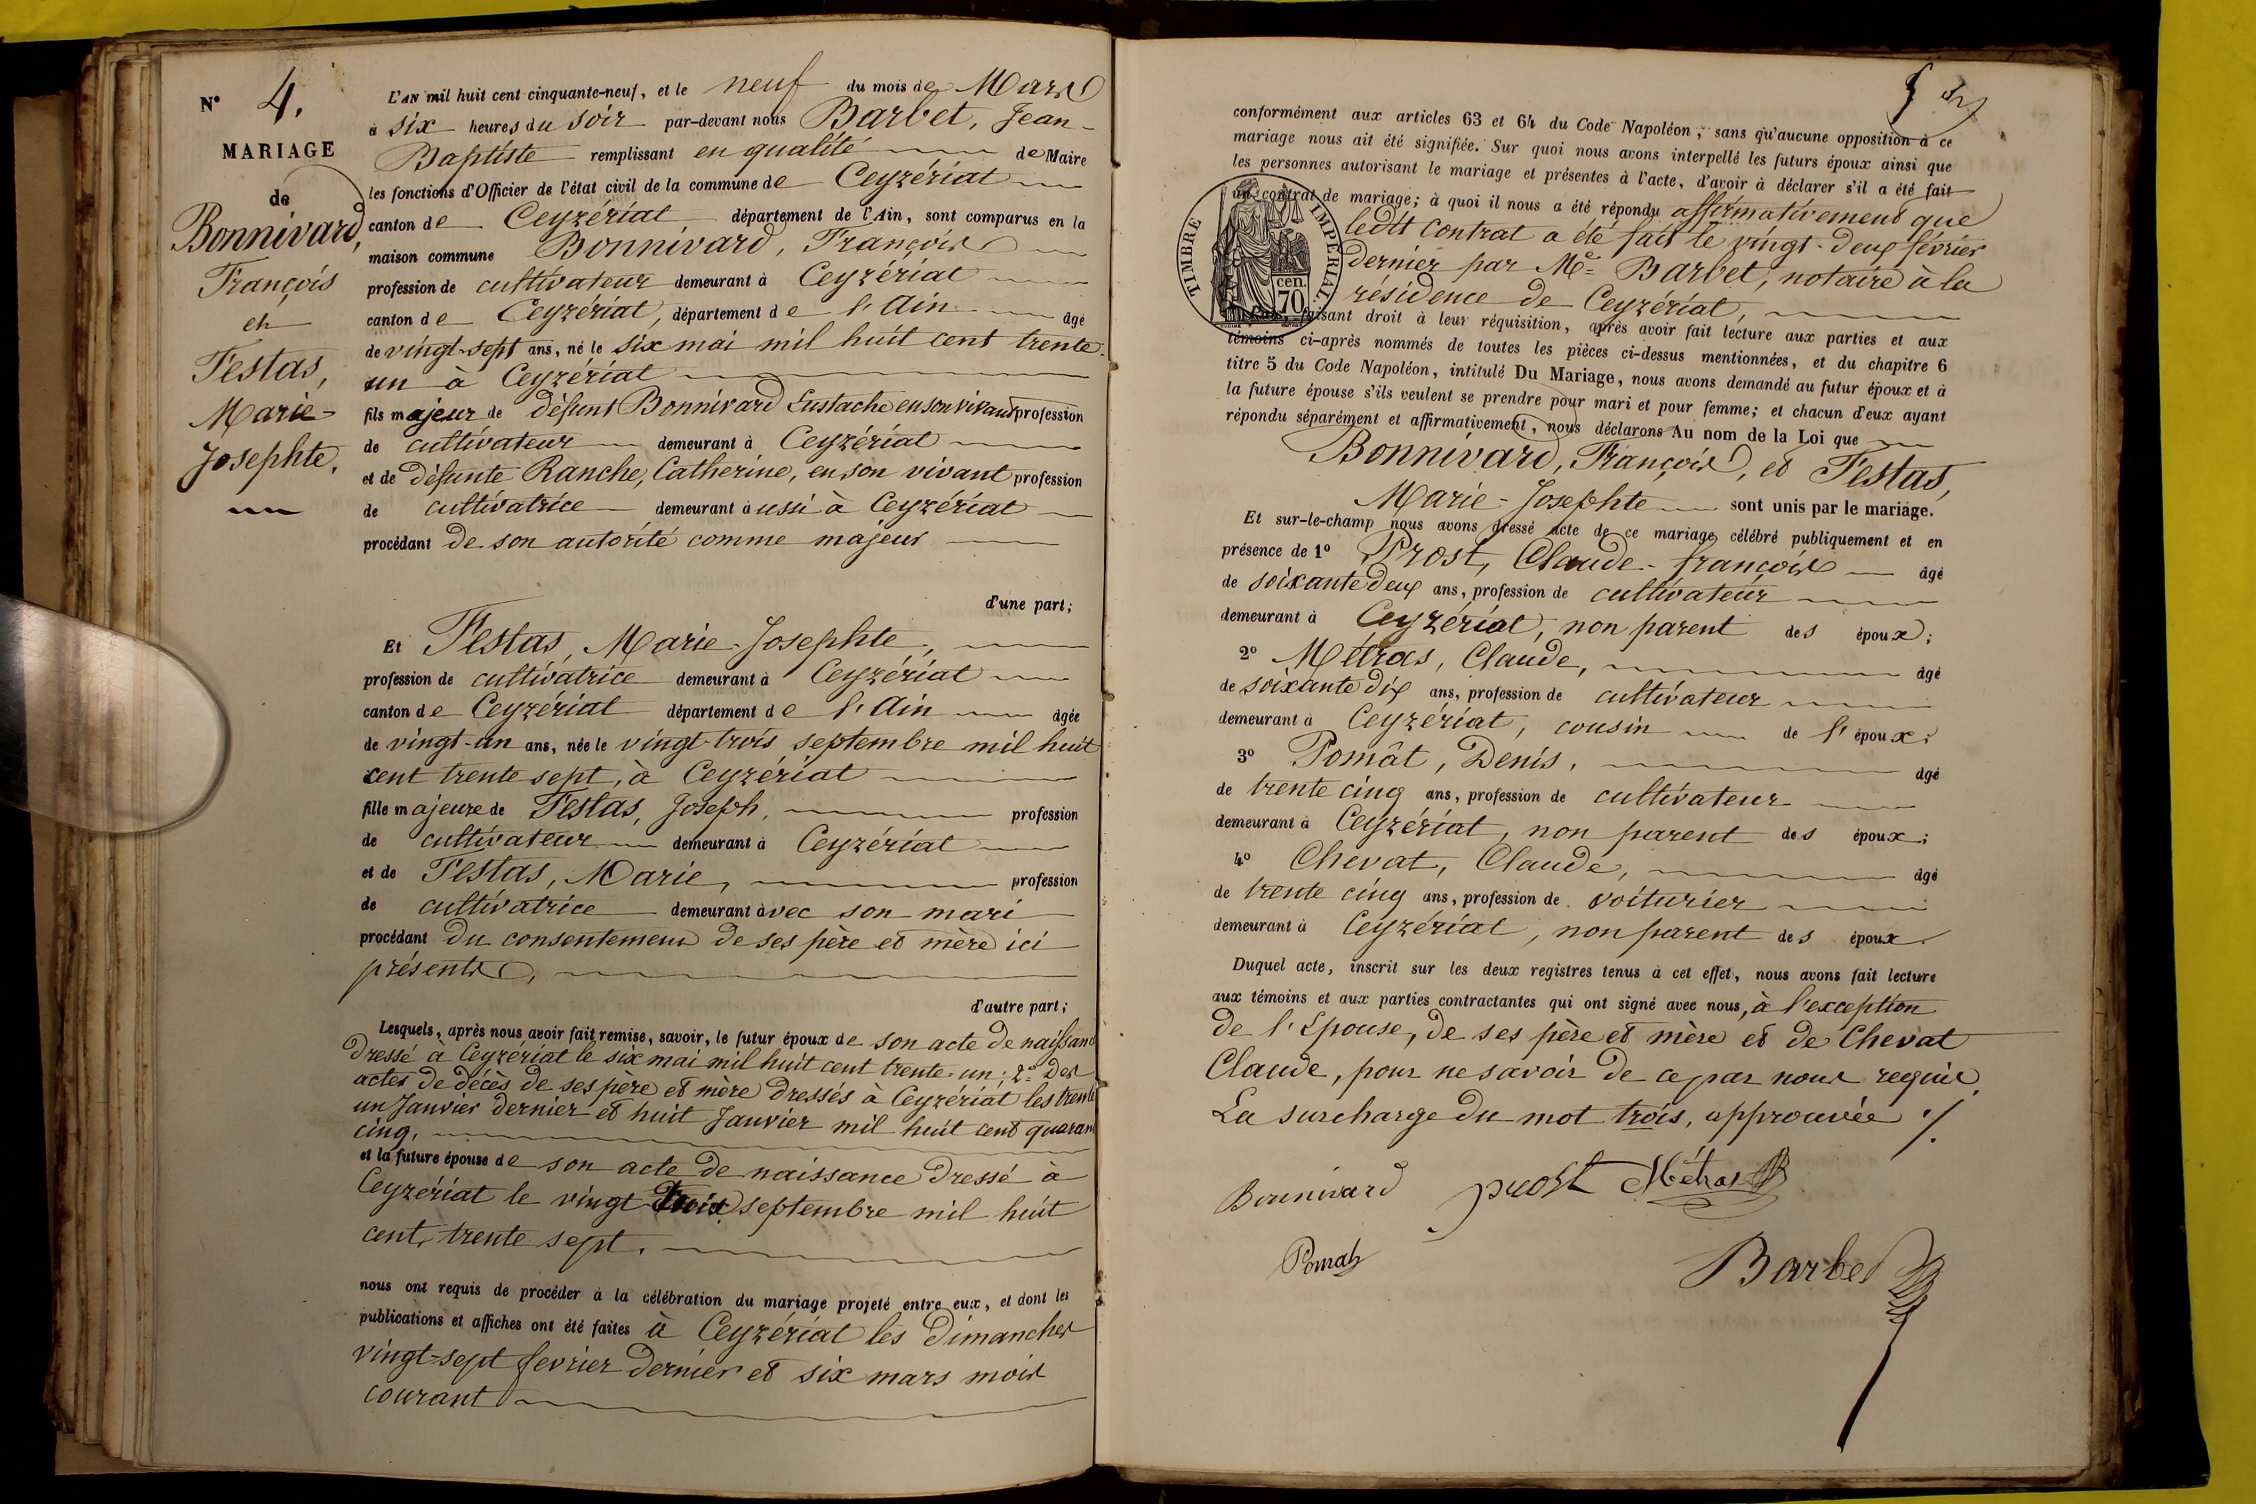 N° 4.
MARIAGE
de
Bonnivard,
François
et
Festas,
Marie-
Josephte.
L'AN mil huit cent cinquante-neuf, et le neuf du mois de Mars
à six heures du soir par-devant nous Barbet, Jean-
Baptiste remplissant en qualité de Maire
les fonctions d'Officier de l'état civil de la commune de Ceyzériat
canton de Ceyzériat département de l'Ain, sont comparus en la
maison commune Bonnivard, François
profession de cultivateur demeurant à Ceyzériat
canton de Ceyzériat, département de l'Ain âgé
de vingt-sept ans, né le six mai mil huit cent trente-
un à Ceyzériat
fils majeur de défunt Bonnivard Eustache en son vivant profession
de cultivateur demeurant à Ceyzériat
et de défunte Ranche, Catherine, en son vivant profession
de cultivatrice demeurant aussi à Ceyzériat
procédant de son autorité comme majeur
d'une part;
Et Festas, Marie-Josephte,
profession de cultivatrice demeurant à Ceyzériat
canton de Ceyzériat département de l'Ain âgée
de vingt-un ans, née le vingt-trois septembre mil huit
cent trente sept, à Ceyzériat
fille majeure de Festas, Joseph,
profession
de cultivateur demeurant à Ceyzériat
et de Festas, Marie, profession
de cultivatrice demeurant avec son mari
procédant du consentement de ses père et mère ici
présents,
d'autre part;
Lesquels, après nous avoir fait remise, savoir, le futur époux de son acte de naissance
dressé à Ceyzériat le six mai mil huit cent trente-un; 2° des
actes de décès de ses père et mère dressés à Ceyzériat les trente
un Janvier dernier et huit Janvier mil huit cent quarante
cinq.
et la future épouse de son acte de naissance dressé à
Ceyzériat le vingt-trois septembre mil huit
cent trente sept.
nous ont requis de procéder à la célébration du mariage projeté entre eux, et dont les
publications et affiches ont été faites à Ceyzériat les dimanches
vingt-sept fevrier dernier et six mars mois
courant
5
conformément aux articles 63 et 64 du Code Napoléon, sans qu'aucune opposition à ce
mariage nous ait été signifiée. Sur quoi nous avons interpellé les futurs époux ainsi que
les personnes autorisant le mariage et présentes à l'acte, d'avoir à déclarer s'il a été fait
un contrat de mariage; à quoi il nous a été répondu affirmativement que
ledit contrat a été fait le vingt-deux février
dernier par Me Barbet, notaire à la
résidence de Ceyzériat,
TIMBRE IMPÉRIAL.
cen.
70
faisant droit à leur réquisition, après avoir fait lecture aux parties et aux
témoins ci-après nommés de toutes les pièces ci-dessus mentionnées, et du chapitre 6
titre 5 du Code Napoléon, intitulé Du Mariage, nous avons demandé au futur époux et à
la future épouse s'ils veulent se prendre pour mari et pour femme; et chacun d'eux ayant
répondu séparément et affirmativement, nous déclarons Au nom de la Loi que
Bonnivard, François, et Festas,
Marie-Josephte sont unis par le mariage.
Et sur-le-champ nous avons dressé acte de ce mariage célébré publiquement et en
présence de 1° Prost, Claude-françois âgé
de soixante deux ans, profession de cultivateur
demeurant à Ceyzériat, non parent des époux;
2° Métras, Claude, âgé
de soixante dix ans, profession de cultivateur
demeurant à Ceyzériat, cousin de l'époux;
3° Pomât, Denis, âgé
de trente cinq ans, profession de cultivateur
demeurant à Ceyzériat, non parent des époux;
4° Chevat, Claude, âgé
de trente cinq ans, profession de voiturier
demeurant à Ceyzériat, non parent des époux.
Duquel acte, inscrit sur les deux registres tenus à cet effet, nous avons fait lecture
aux témoins et aux parties contractantes qui ont signé avec nous, à l'exception
de l'Epouse, de ses père et mère et de Chevat
Claude, pour ne savoir de ce par nous requis.
La surcharge du mot trois, approuvée ./.
Bonnivard prost Métras
Pomat
Barbet